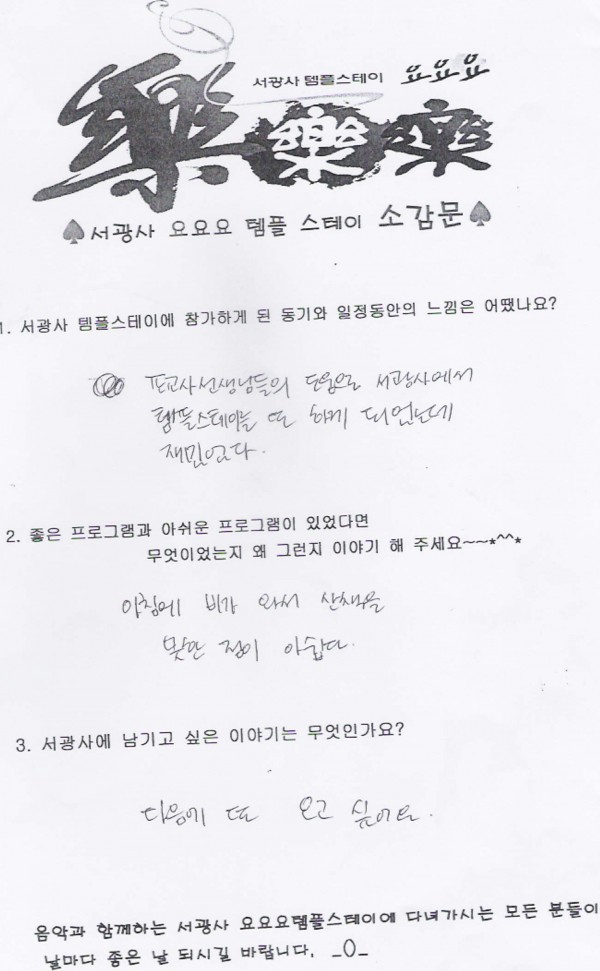 서광사 템플스테이 요요요
樂 樂 樂
♠서광사 요요요 템플 스테이 소감문♠
1. 서광사 템플스테이에 참가하게 된 동기와 일정동안의 느낌은 어땠나요?
포교사선생님들의 도움으로 서광사에서
템플스테이를 또 하게 되었는데
재밌었다.
2. 좋은 프로그램과 아쉬운 프로그램이 있었다면
무엇이었는지 왜 그런지 이야기 해 주세요~~*^^*
아침에 비가 와서 산책을
못한 점이 아쉽다.
3. 서광사에 남기고 싶은 이야기는 무엇인가요?
다음에 또 오고 싶어요.
음악과 함께하는 서광사 요요요템플스테이에 다녀가시는 모든 분들이
날마다 좋은 날 되시길 바랍니다. _()_